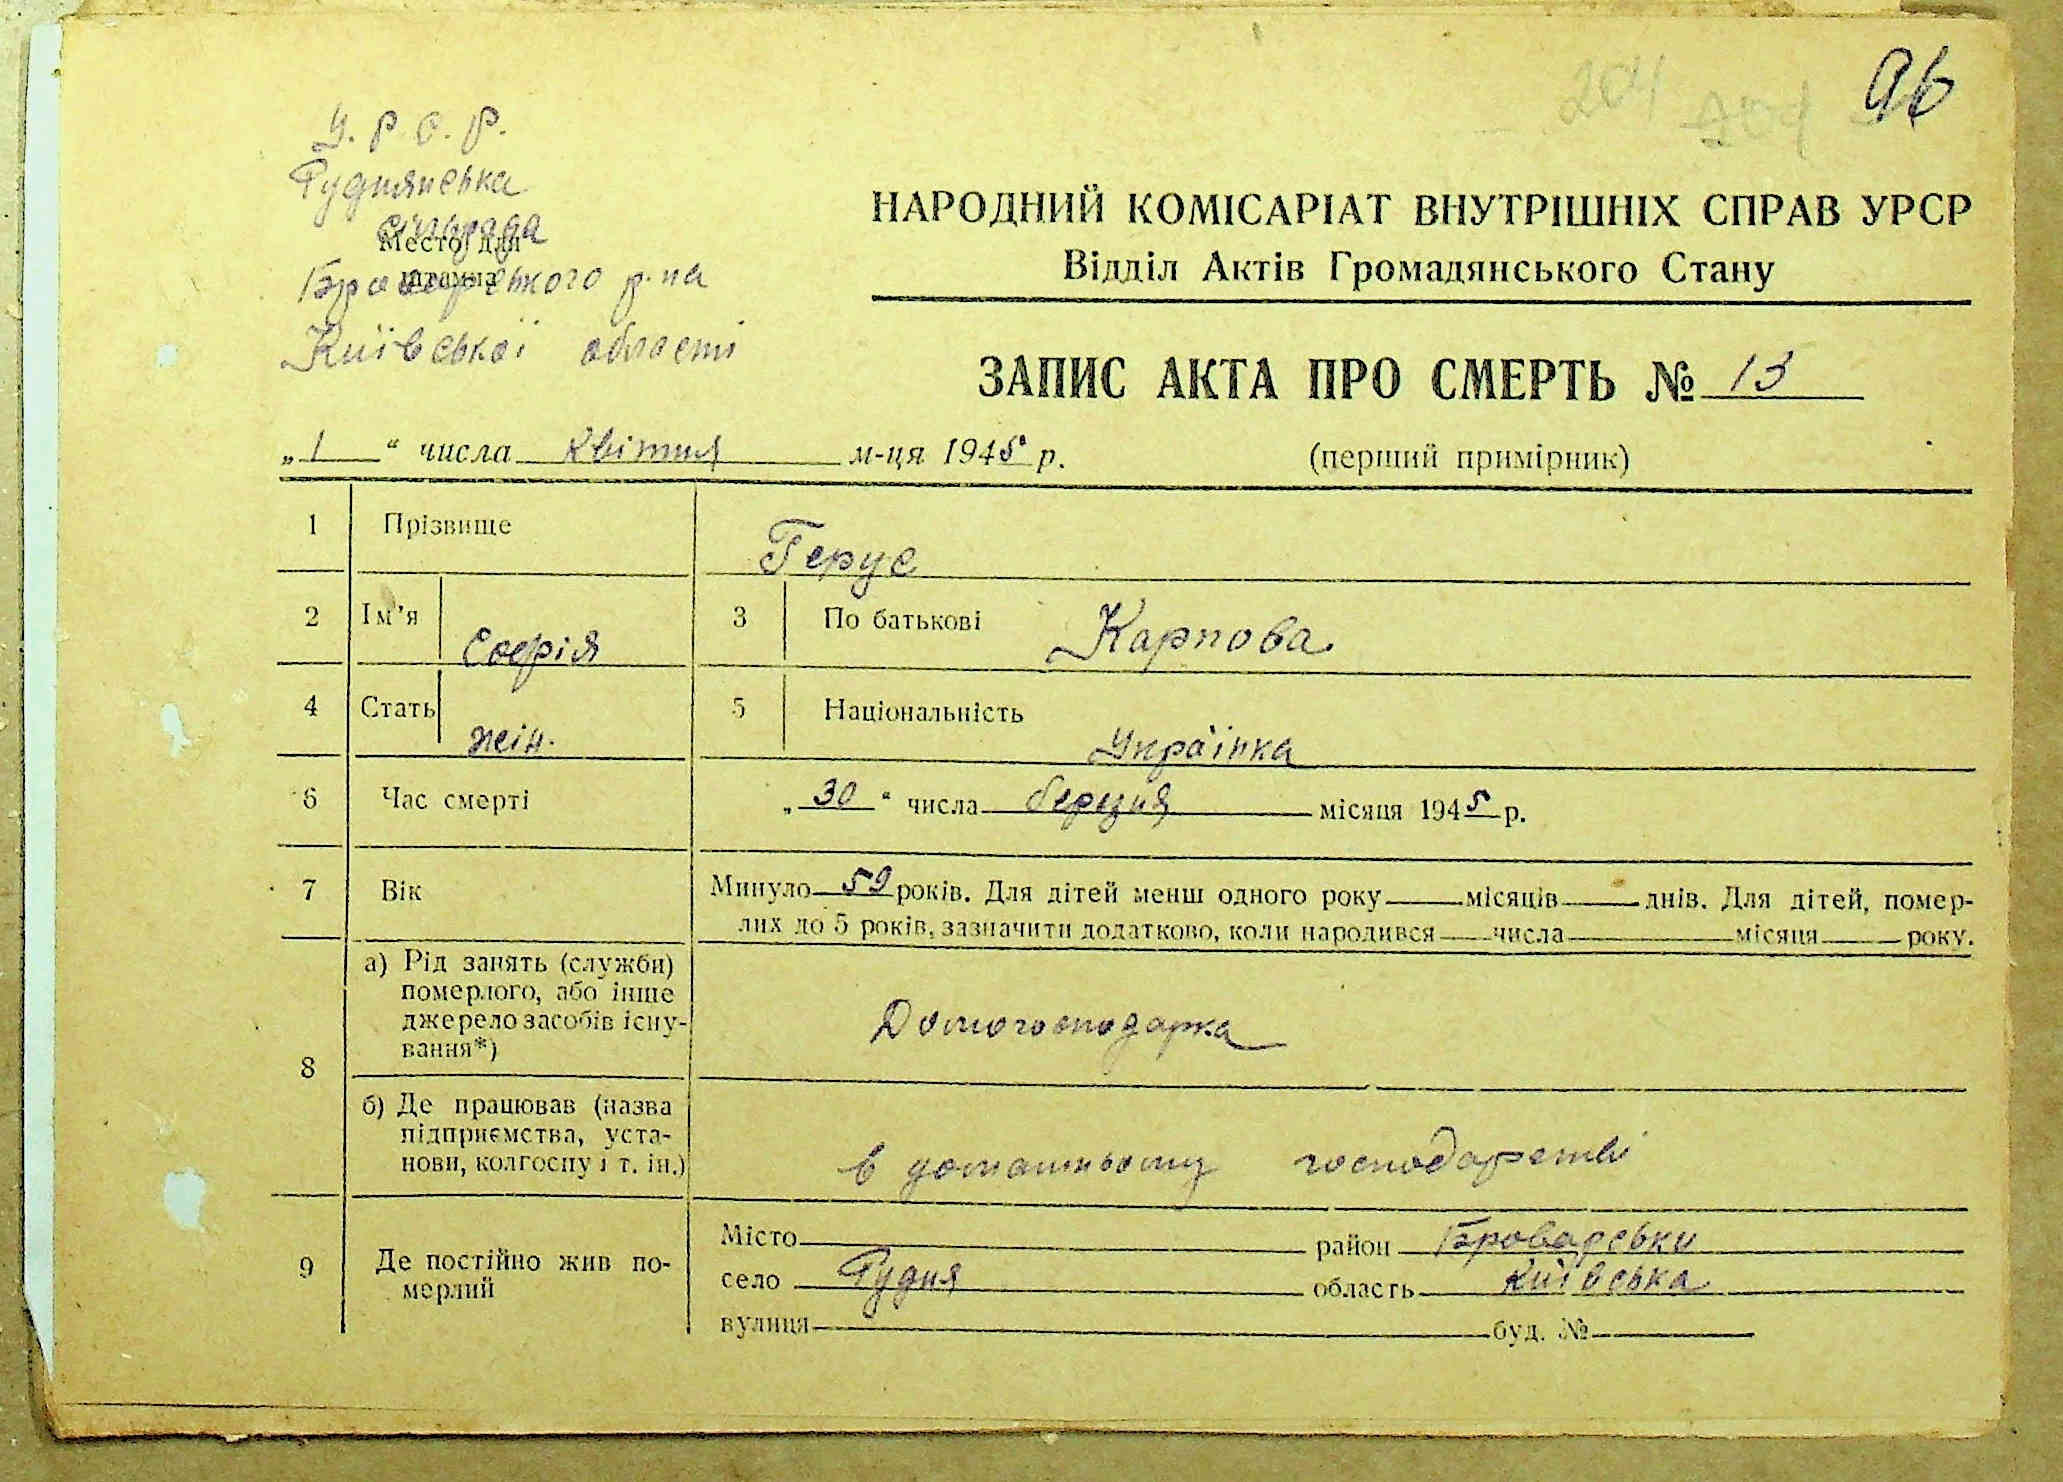 204 204 96
У. Р С. Р.
Руднянська
сільрада
Место для
штампа
Броварського р-на
Київської області
НАРОДНИЙ КОМІСАРІАТ ВНУТРІШНІХ СПРАВ УРСР
Відділ Актів Громадянського Стану
ЗАПИС АКТА ПРО СМЕРТЬ № 13
„ 1 “ числа квітня м-ця 1945 р. (перший примірник)
1 Прізвище Герус
2 Ім’я Софія 3 По батькові Карпова
4 Стать жін. 5 Національність Українка
6 Час смерті „ 30 “ числа березня місяця 1945 р.
7 Вік Минуло 59 років. Для дітей менш одного року місяців днів. Для дітей, помер-
лих до 5 років, зазначити додатково, коли народився числа місяця року.
8 а) Рід занять (служби)
померлого, або інше
джерело засобів існу-
вання*)
Домогосподарка
б) Де працював (назва
підприємства, уста-
нови, колгоспу і т. ін.)
в домашньому господарстві
9 Де постійно жив по-
мерлий
Місто район Броварськи
село Рудня область Київська
вулиця буд. №